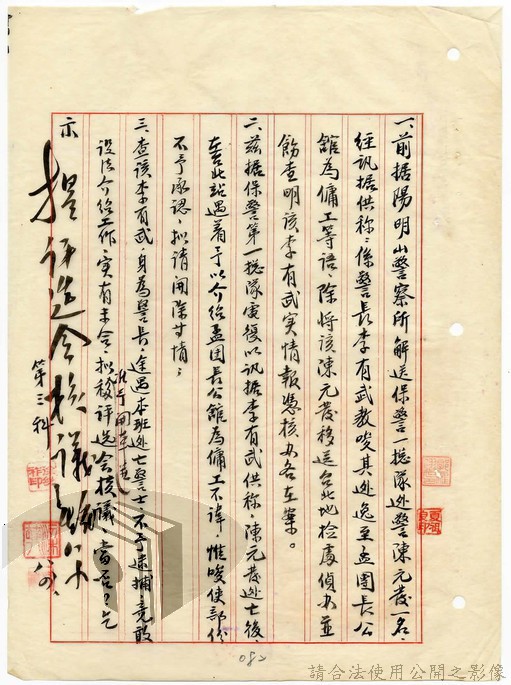 一、前据陽明山警察所解送保警一總隊逃警陳元發一名、
經訊据供称:係警長李有武教唆其逃逸至孟團長公
館為傭工等語、除將該陳元發移送台北地檢處偵办並
飭查明該李有武实情報憑核办各在案。
二、茲据保警第一總隊電復以訊据李有武供称、陳元發逃亡後、
在台北站遇着予以介紹孟團長公館為傭工不諱、惟唆使部份
不予承認、拟請開除等情;
三、查該李有武身為警長、途遇本班逃亡警士不予逮捕竟敢
設法介紹工作、实有未合、拟移評选会核議
當否?乞
示
第三科
提評选会核議
八、
082
請合法使用公開之影像